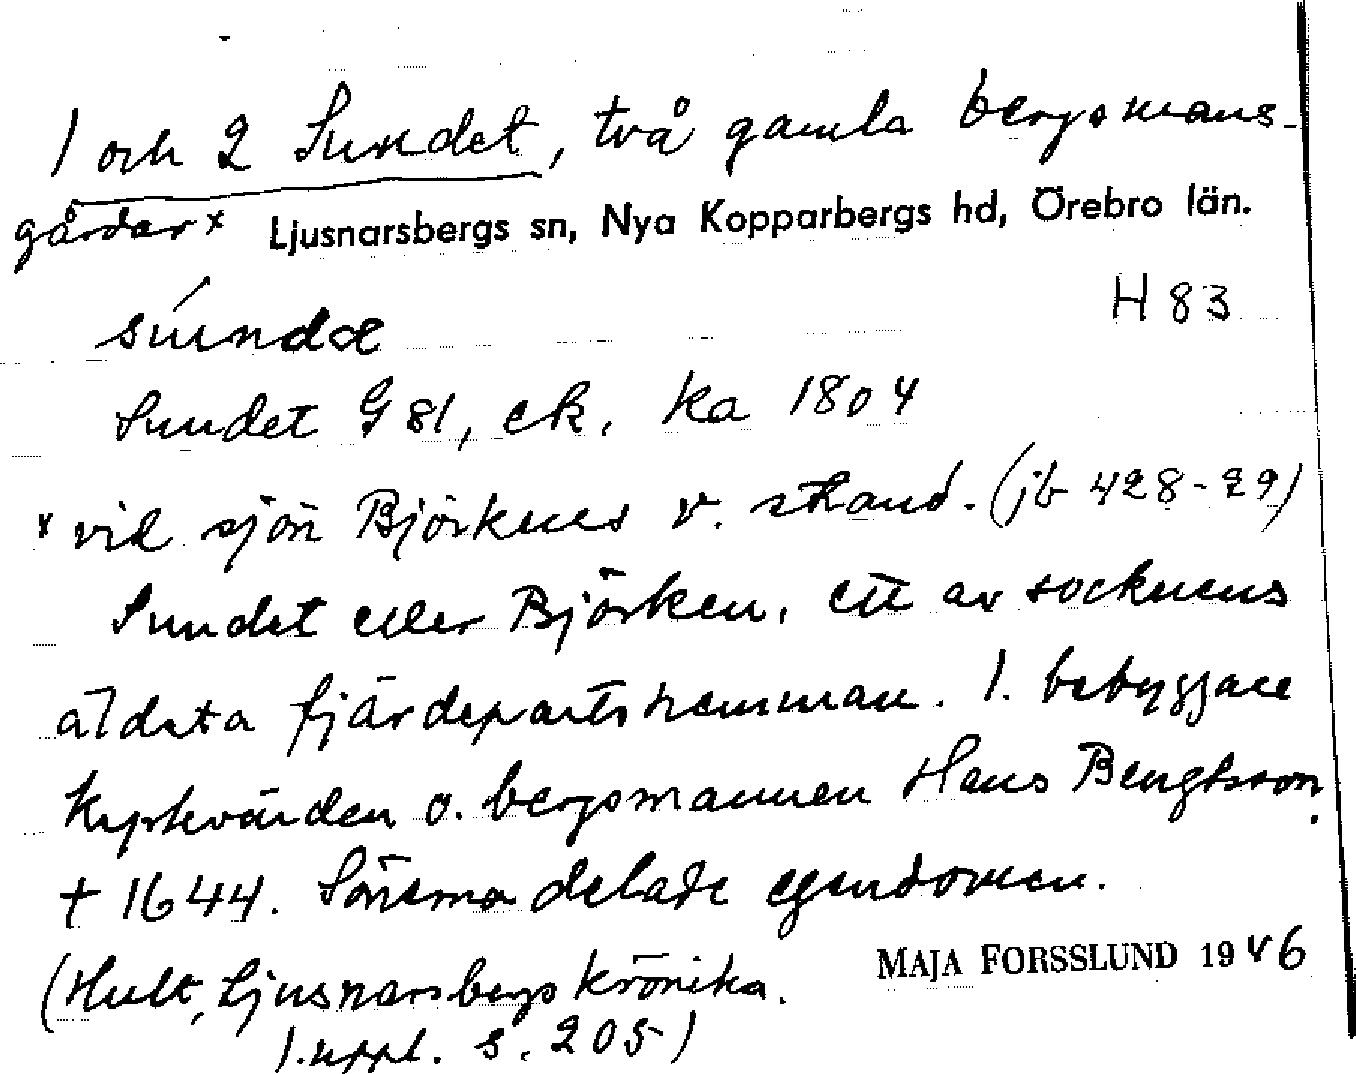 1 och 2 Sundet, två gamla bergsmans-
gårdar x Ljusnarsbergs sn, Nya Kopparbergs hd, Örebro län.
H 83
súndæ
Sundet G 81, ek. ka 1804
x vid sjön Björkens v. strand. (jb 428-29)
Sundet eller Björken, ett av socknens
äldsta fjärdepartshemman. 1. bebyggare
kyrkvärden o. bergsmannen Hans Bengtsson.
† 1644. Sönerna delade egendomen.
(Hult, Ljusnarsbergs krönika.
1. uppl. s. 205)
MAJA FORSSLUND 1946